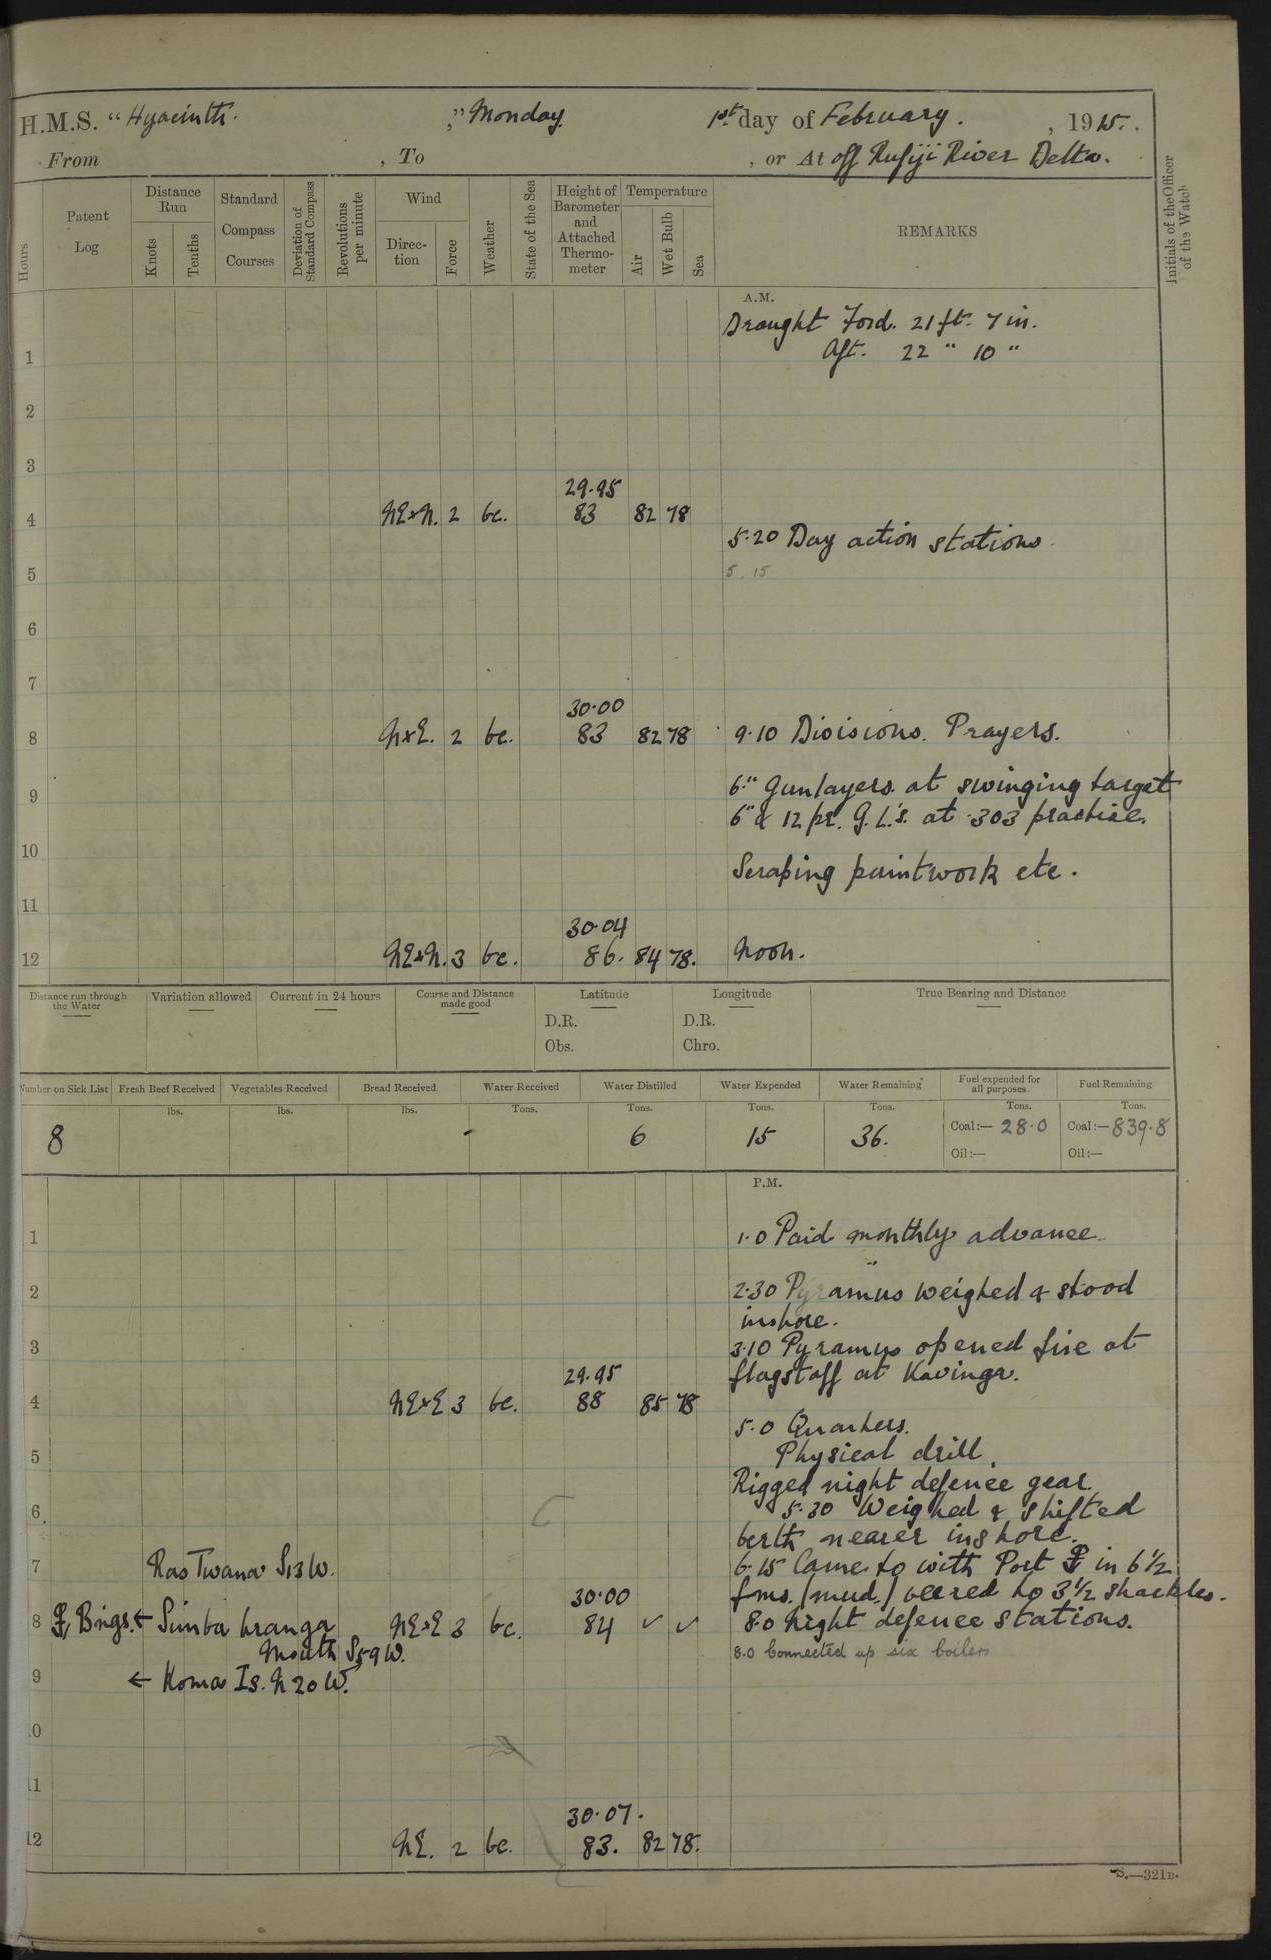 H.M.S. "Hyacinth." Monday 1st day of February, 1915.
From , To , or At off Rufiji River Delta.
Hours
Patent Log
Distance Run
Knots
Tenths
Standard Compass Courses
Deviation of Standard Compass
Revolutions per minute
Wind
Direction
Force
Weather
State of the Sea
Height of Barometer and Attached Thermometer
Temperature
Air
Wet Bulb
Sea
REMARKS
Initials of the Officer of the Watch
A.M.
Draught Ford. 21 ft. 7 in.
1 Aft. 22 " 10 "
2
3
29.95
4 NExN. 2 bc. 83 82 78
5.20 Day action stations.
5 5.15
6
7
30.00
8 NxE. 2 bc. 83 82 78 9.10 Divisions. Prayers.
6" Gunlayers at swinging target
9 6" & 12 pr. G.L's. at .303 practice.
10 Scraping paintwork etc.
11
30.04
12 NExN. 3 bc. 86. 84 78. Noon.
Distance run through the Water
Variation allowed
Current in 24 hours
Course and Distance made good
Latitude
D.R.
Obs.
Longitude
D.R.
Chro.
True Bearing and Distance
Number on Sick List
Fresh Beef Received
Vegetables Received
Bread Received
Water Received
Water Distilled
Water Expended
Water Remaining
Fuel expended for all purposes.
Fuel Remaining
lbs. lbs. lbs. Tons. Tons. Tons. Tons. Tons. Tons.
8 - 6 15 36. Coal:— 28.0 Coal:— 839.8
Oil:— Oil:—
P.M.
1 1.0 Paid monthly advance.
2 2.30 Pyramus weighed & stood
inshore.
3 3.10 Pyramus opened fire at
29.95 flagstaff at Kavinga.
4 NExE 3 bc. 88 85 78
5.0 Quarters.
5 Physical drill.
Rigged night defence gear.
6 5.30 Weighed & shifted
berth nearer inshore.
7 Ras Twana S13W. 6.15 Came to with Port ⚓ in 6½
30.00 fms. (mud.) veered to 3½ shackles.
8 ⚓ Brngs. ← Simba Uranga NExE 3 bc. 84 ✓ ✓ 8.0 Night defence stations.
Mouth S59W. 8.0 Connected up six boilers
9 ← Koma Is. N20W.
10
11
30.07.
12 NE. 2 bc. 83. 82 78.
S.—321B.